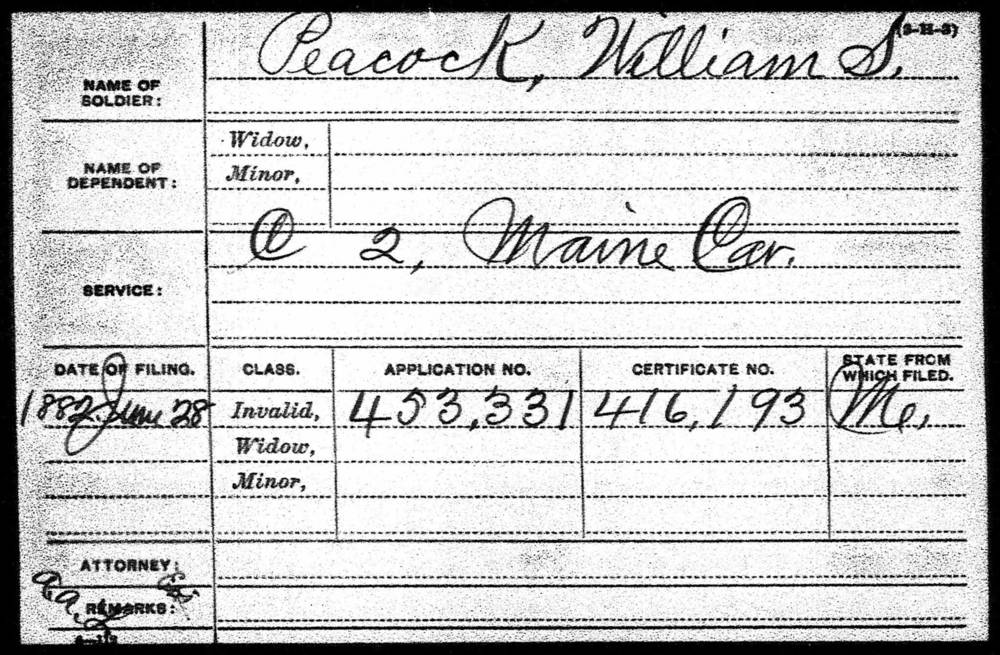 (3-H-3)
NAME OF SOLDIER: Peacock, William S.
NAME OF DEPENDENT: Widow,
Minor,
SERVICE: C 2, Maine Cav.
DATE OF FILING. CLASS. APPLICATION NO. CERTIFICATE NO. STATE FROM WHICH FILED.
1882 June 28 Invalid, 453,331 416,193 Me,
Widow,
Minor,
ATTORNEY:
REMARKS: